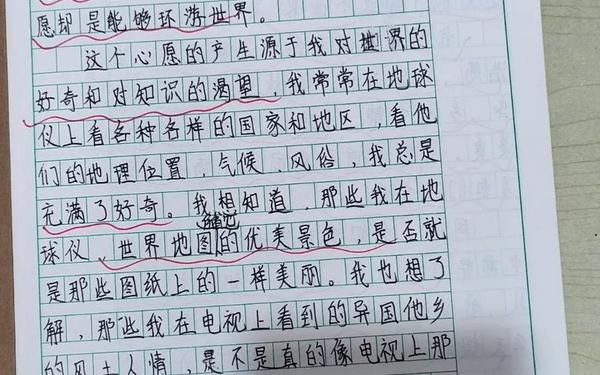 愿却是能够环游世界。
这个心愿的产生源于我对世界的
好奇和对知识的渴望，我常常在地球
仪上看各种各样的国家和地区，看他
们的地理位置、气候、风俗，我总是
充满了好奇。我想知道，那些我在地
球仪、世界地图描绘的优美景色，是否就
是那些图纸上的一样美丽。我也想了
解，那些我在电视上看到的异国他乡
的风土人情，是不是真的像电视上那